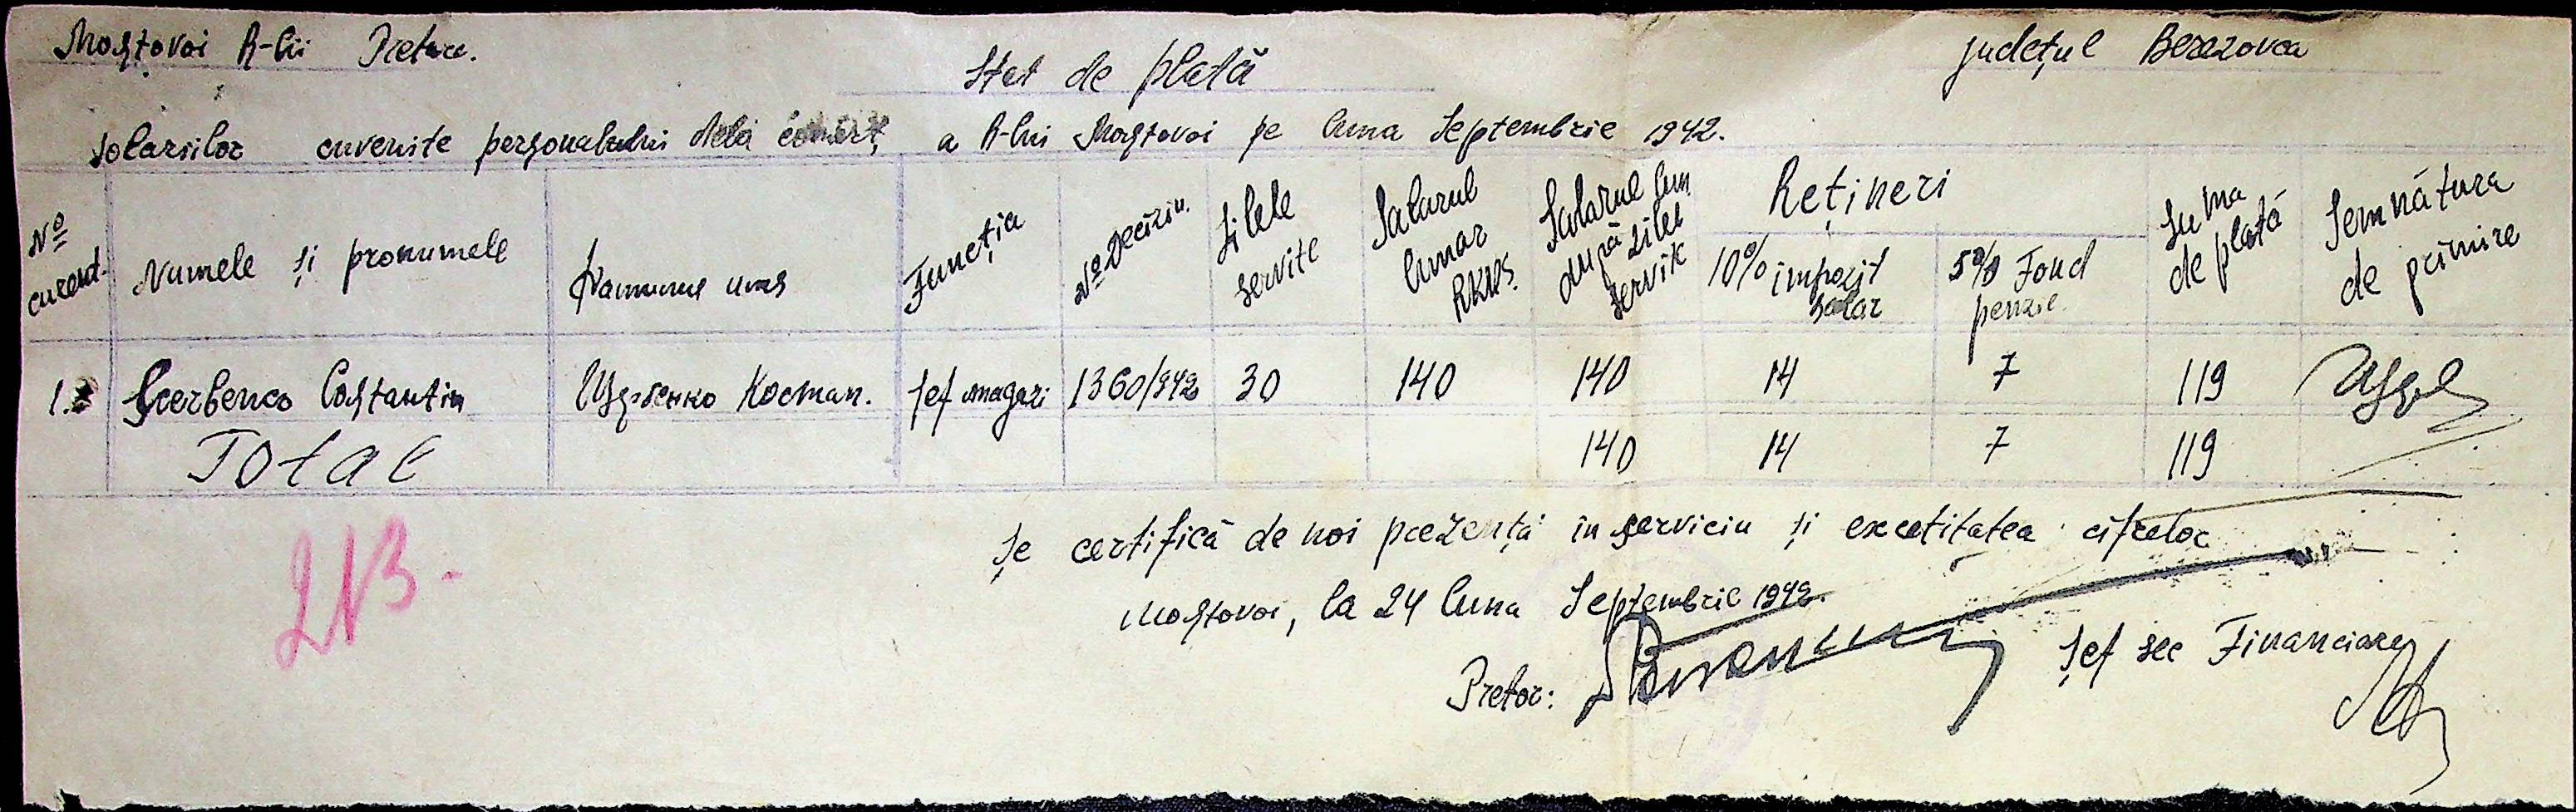 Moștovoi R-lui Pretore.
județul Berezovca
Stat de plată
Solariilor cuvenite personalului dela comerț a R-lui Moștovoi pe luna Septembrie 1942.
№ curent.
Numele și pronumele
Функция имя
Funcția
№ Deciziu.
Zilele servite
Salarul lunar RKKS.
Salarul lun după zilel servit
Rețineri
10% impozit salar
5% Fond penzie.
Suma de plată
Semnătura de primire
1. Șcerbenco Coștantin Щербенко Констан. șef magazi 1360/942 30 140 140 14 7 119
Total 140 14 7 119
213-
Se certifică de noi prezența în serviciu și exactitatea cifrelor
Moștovoi, la 24 luna Septembrie 1942.
Pretor:
Șef sec Financiare